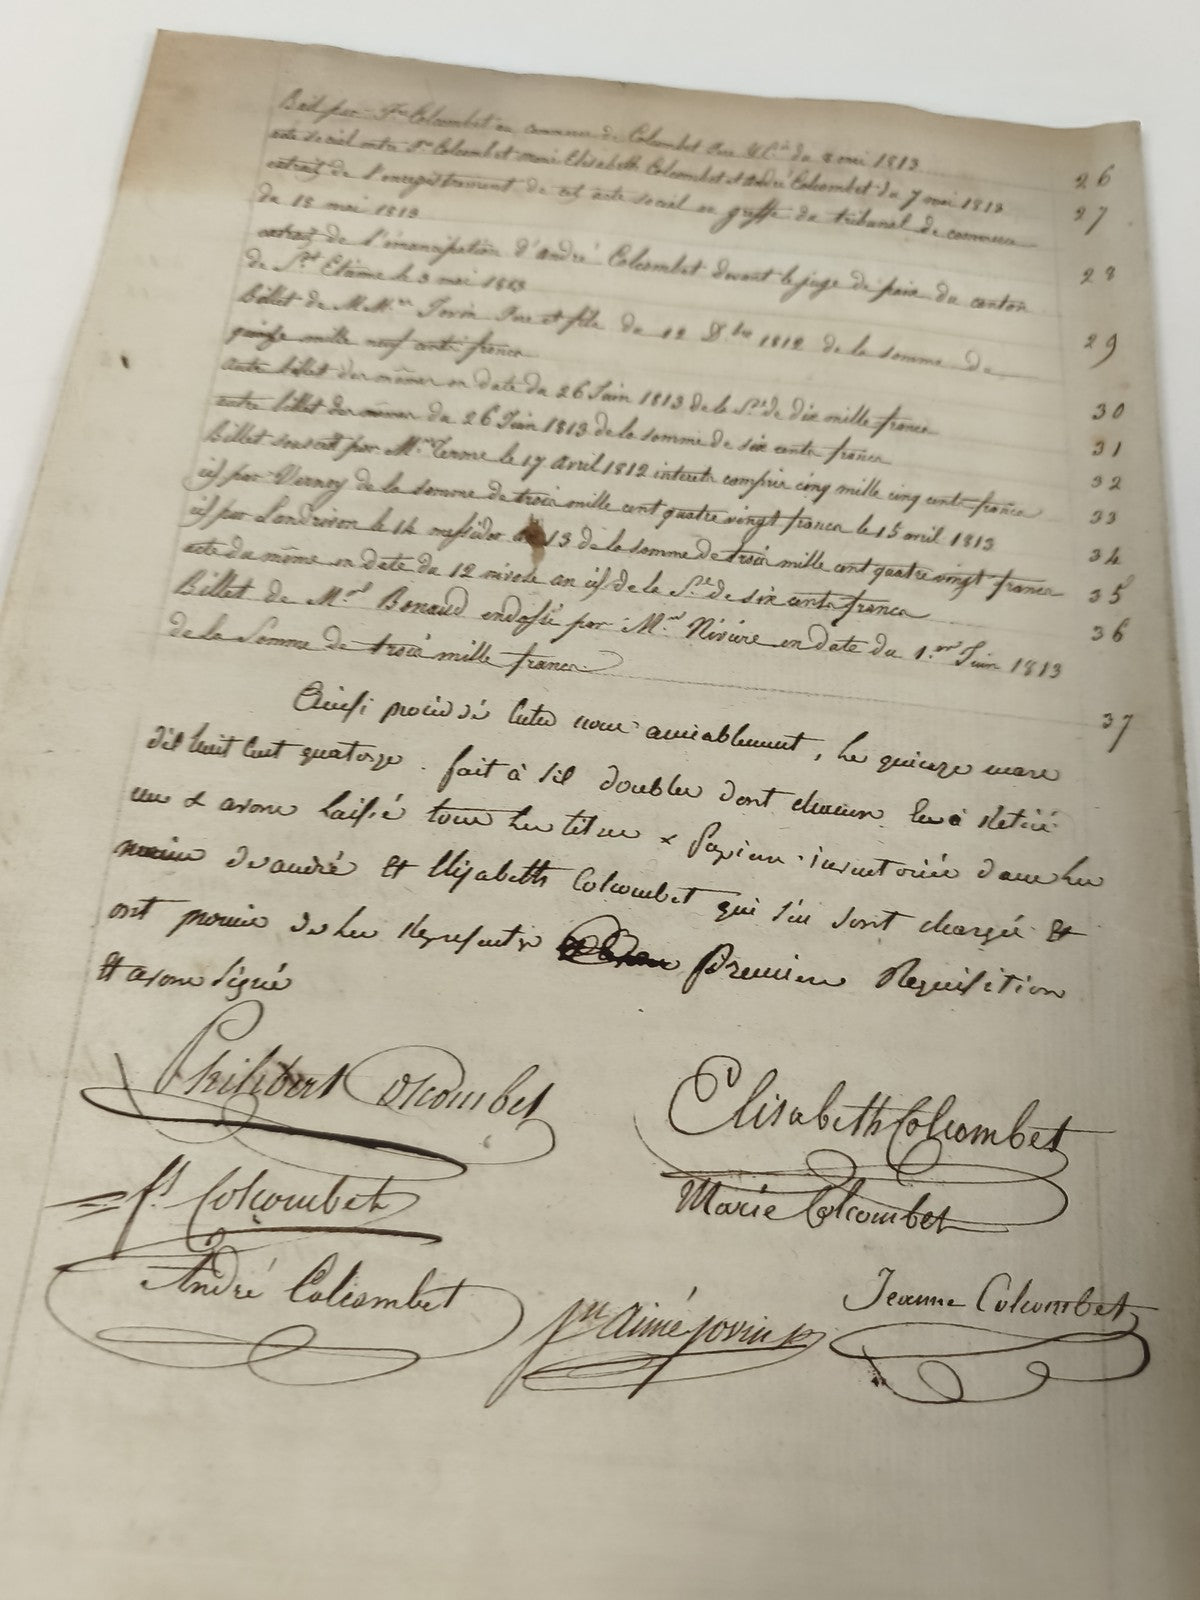 Bail par Fs Colcombet au commerce de Colcombet Pere & Cie du 8 mai 1813 26
acte social entre Fs Colcombet marie Elisabeth Colcombet et André Colcombet du 7 mai 1813 27
extrait de l'enregistrement de cet acte social au greffe du tribunal de commerce
du 18 mai 1813 28
extrait de l'émancipation d'André Colcombet devant le juge de paix du canton
de St Etienne le 3 mai 1813 29
Billet de MMrs Jovin Pere et fils du 12 Xbre 1812 de la somme de
quinze mille neuf cents francs 30
autre billet des mêmes en date du 26 Juin 1813 de la Sme de dix mille francs 31
autre billet des mêmes du 26 Juin 1813 de la somme de six cents francs 32
Billet souscrit par Mr Terme le 17 avril 1812 interets compris cinq mille cinq cents francs 33
id par Vernay de la somme de trois mille cent quatre vingt francs le 15 avril 1813 34
id par Landrivon le 14 messidor an 13 de la somme de trois mille cent quatre vingt francs 35
acte du même en date du 12 nivose an id de la Sme de six cents francs 36
Billet de Mrs Bonaud endossé par Mrs Rivière en date du 1.er Juin 1813
de la Somme de trois mille francs 37
Ainsi procédé entre nous amiablement, le quinze mars
dil huit cent quatorze. fait à sil doubles dont chacun en a retiré
un & avons laissé tous les titres & papiers inventoriés dans les
mains de andré et Elizabeth Colcombet qui s'en sont chargé et
ont promis de les représenter premiere Requisition
et avons signé
Philibert Colcombet
Elisabeth Colcombet
fs Colcombet
Marie Colcombet
André Colcombet
Jeanne Colcombet
Aimé jovin